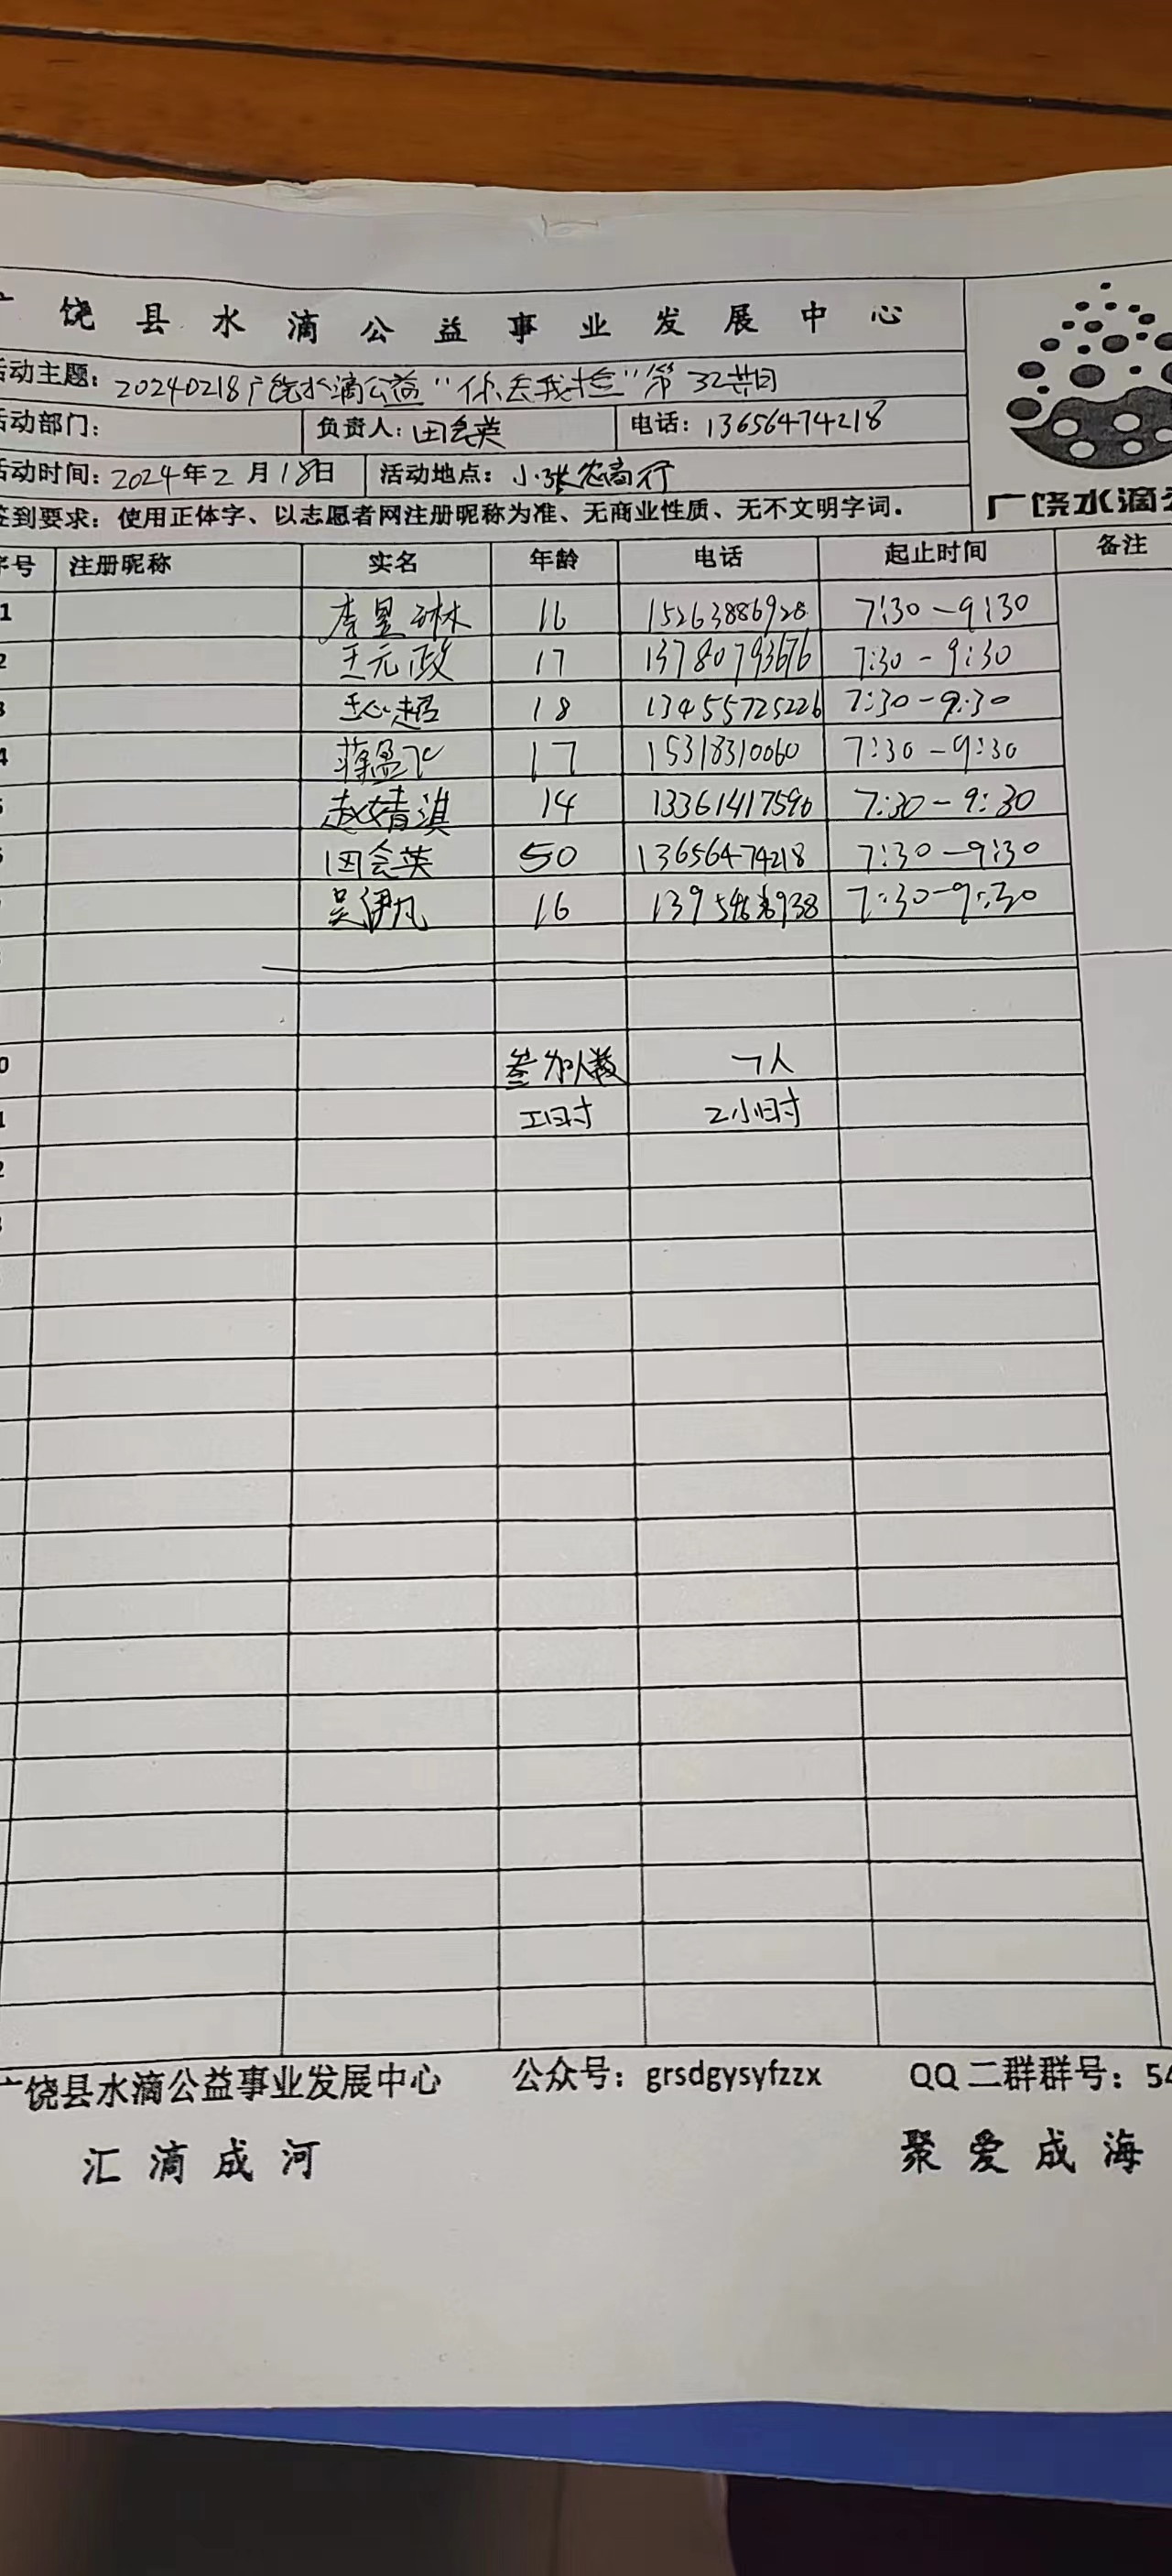 饶县水滴公益事业发展中心
活动主题：20240218广饶水滴公益"你丢我捡"第32期
活动部门： 负责人：田会英 电话：13656474218
活动时间：2024年2月18日 活动地点：小张农商行
签到要求：使用正体字、以志愿者网注册昵称为准、无商业性质、无不文明字词。
广饶水滴
序号 注册昵称 实名 年龄 电话 起止时间 备注
1 李昱琳 16 15263886928 7:30-9:30
2 王元政 17 13780793676 7:30-9:30
3 超 18 13455725226 7:30-9:30
4 蒋孟 17 15318310060 7:30-9:30
5 赵婧淇 14 13361417590 7:30-9:30
6 田会英 50 13656474218 7:30-9:30
吴伊凡 16 7:30-9:30
0 参加人数 7人
1 工时 2小时
2
3
广饶县水滴公益事业发展中心 公众号：grsdgysyfzzx QQ二群群号：54
汇滴成河 聚爱成海